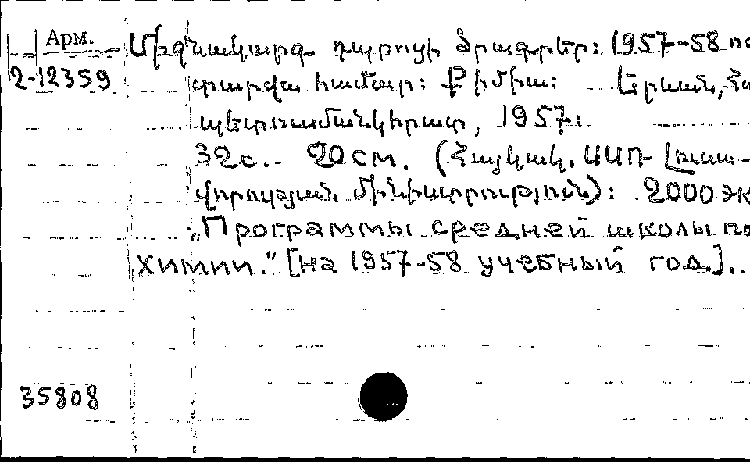 Арм.
Միջնակարգ դպրոցի ծրագրեր: 1957-58 ուս
2-12359 տարվա համար: Քիմիա: Երևան, Հա
պետուսմանկհրատ, 1957.
32с. 20см. (Հայկակ. ՍՍՌ Լուսա-
վորության մինիստրություն): 2000 эк
„Программы средней школы по
химии." [на 1957-58 учебный год.]..
35808